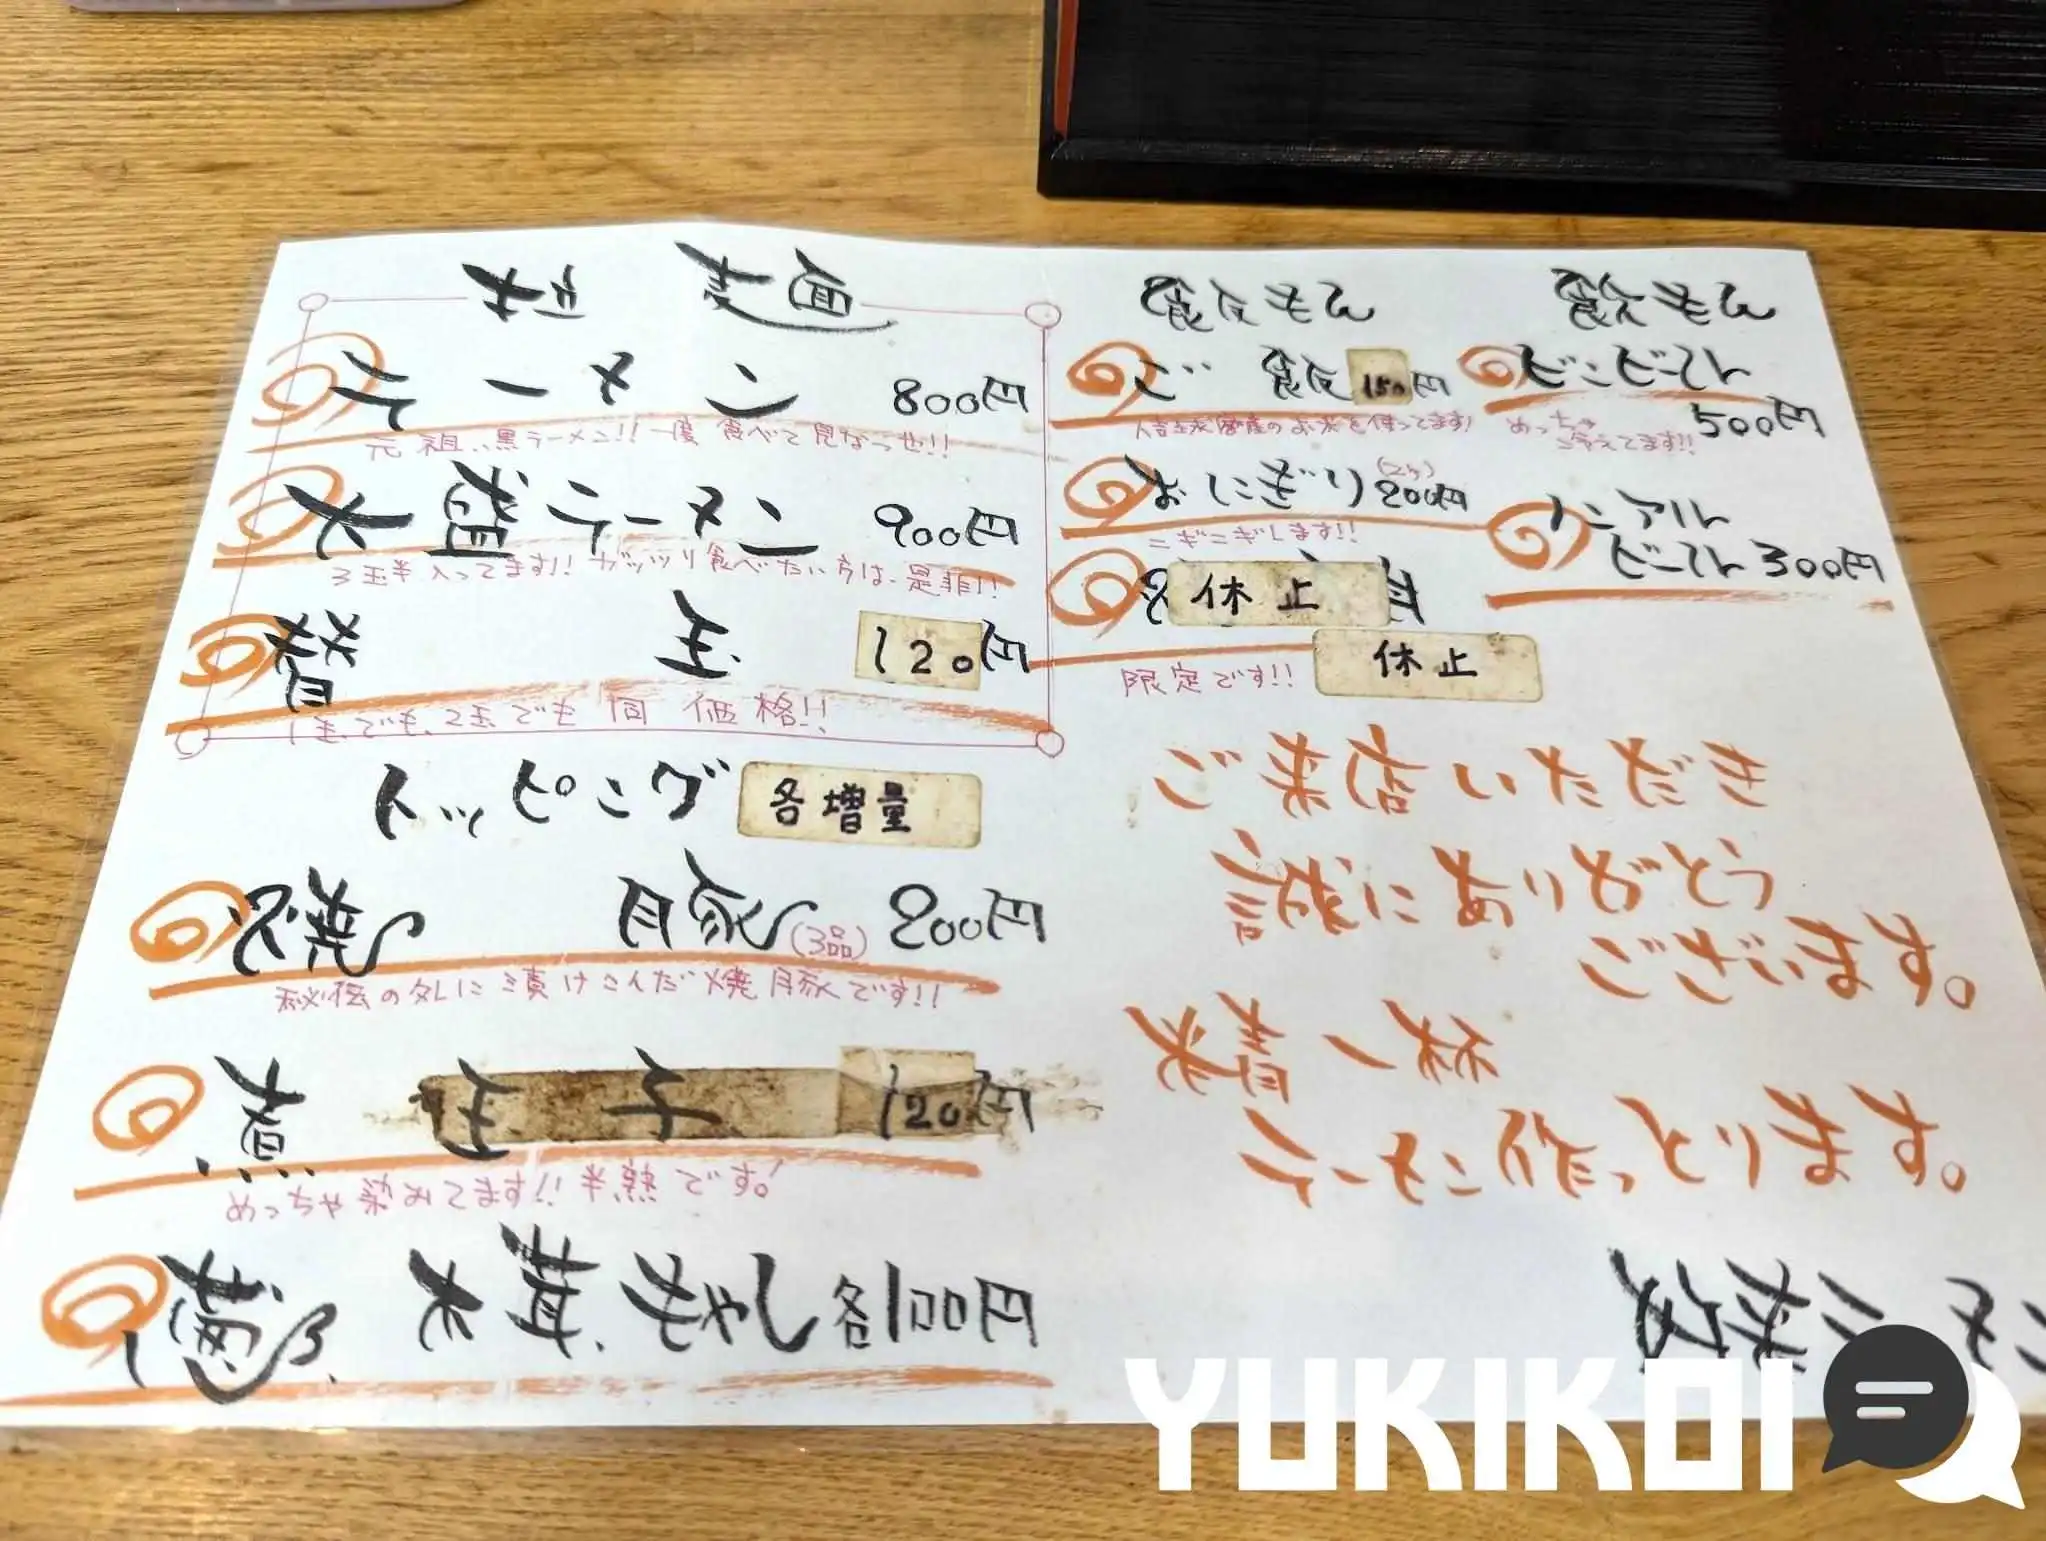 麺類
ラーメン 800円
元祖、黒ラーメン!!一度食べて見なっせ!!
大盛ラーメン 900円
3玉半入ってます!!ガッツリ食べたい方は、是非!!
替玉 120円
1玉でも、2玉でも同価格!!
トッピング 各増量
焼豚 (3品) 200円
秘伝のタレに漬けこんだ焼豚です!!
煮玉子 120円
めっちゃ染みてます!!半熟です。
葱 木茸 もやし 各100円
食べもん
ご飯 150円
人吉球磨産のお米を使ってます!
おにぎり (2ケ) 200円
ニギニギします!!
休止
限定です!! 休止
飲みもん
ビンビール
500円
めっちゃ
冷えてます!!
ノンアル
ビール 300円
ご来店いただき
誠にありがとう
ございます。
一杯一杯
ラーメン作っとります。
YUKIKOI